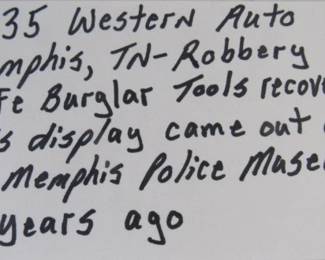 35 Western Auto
mphis, TN-Robbery
fe Burglar Tools recove
s display came out
Memphis Police Muse
years ago